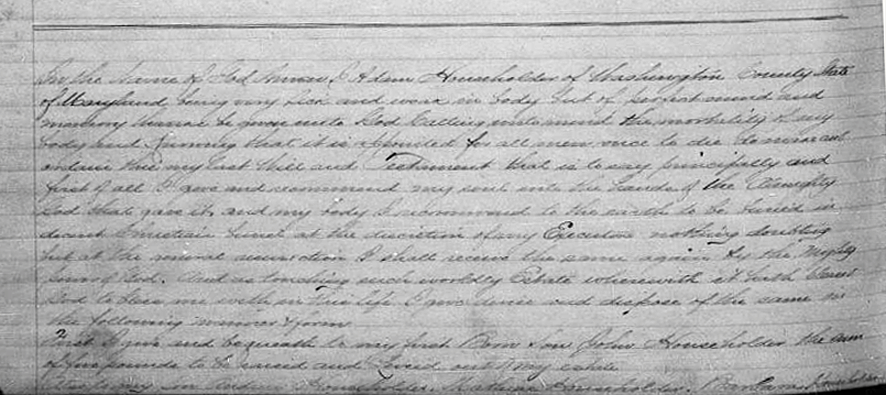 In the Name of God Amen I Adam Householder of Washington County State
of Maryland being very sick and weak in body but of perfect mind and
memory thanks be given unto God Calling unto mind the mortality of my
body and knowing that it is appointed for all men once to die do make and
ordain this my last Will and Testament that is to say principally and
first of all I give and recommend my soul into the hands of the Almighty
God that gave it, and my body I recommend to the earth to be buried in
decent Christian burial at the discretion of my Executors nothing doubting
but at the general resurrection I shall receive the same again by the Mighty
power of God. And as touching such worldly Estate wherewith it hath pleased
God to bless me with in this life I give devise and dispose of the same in
the following manner & form
First I give and bequeath to my first Born Son John Householder the sum
of five pounds to be raised and Levied out of my estate
Householder, Householder, Barbara